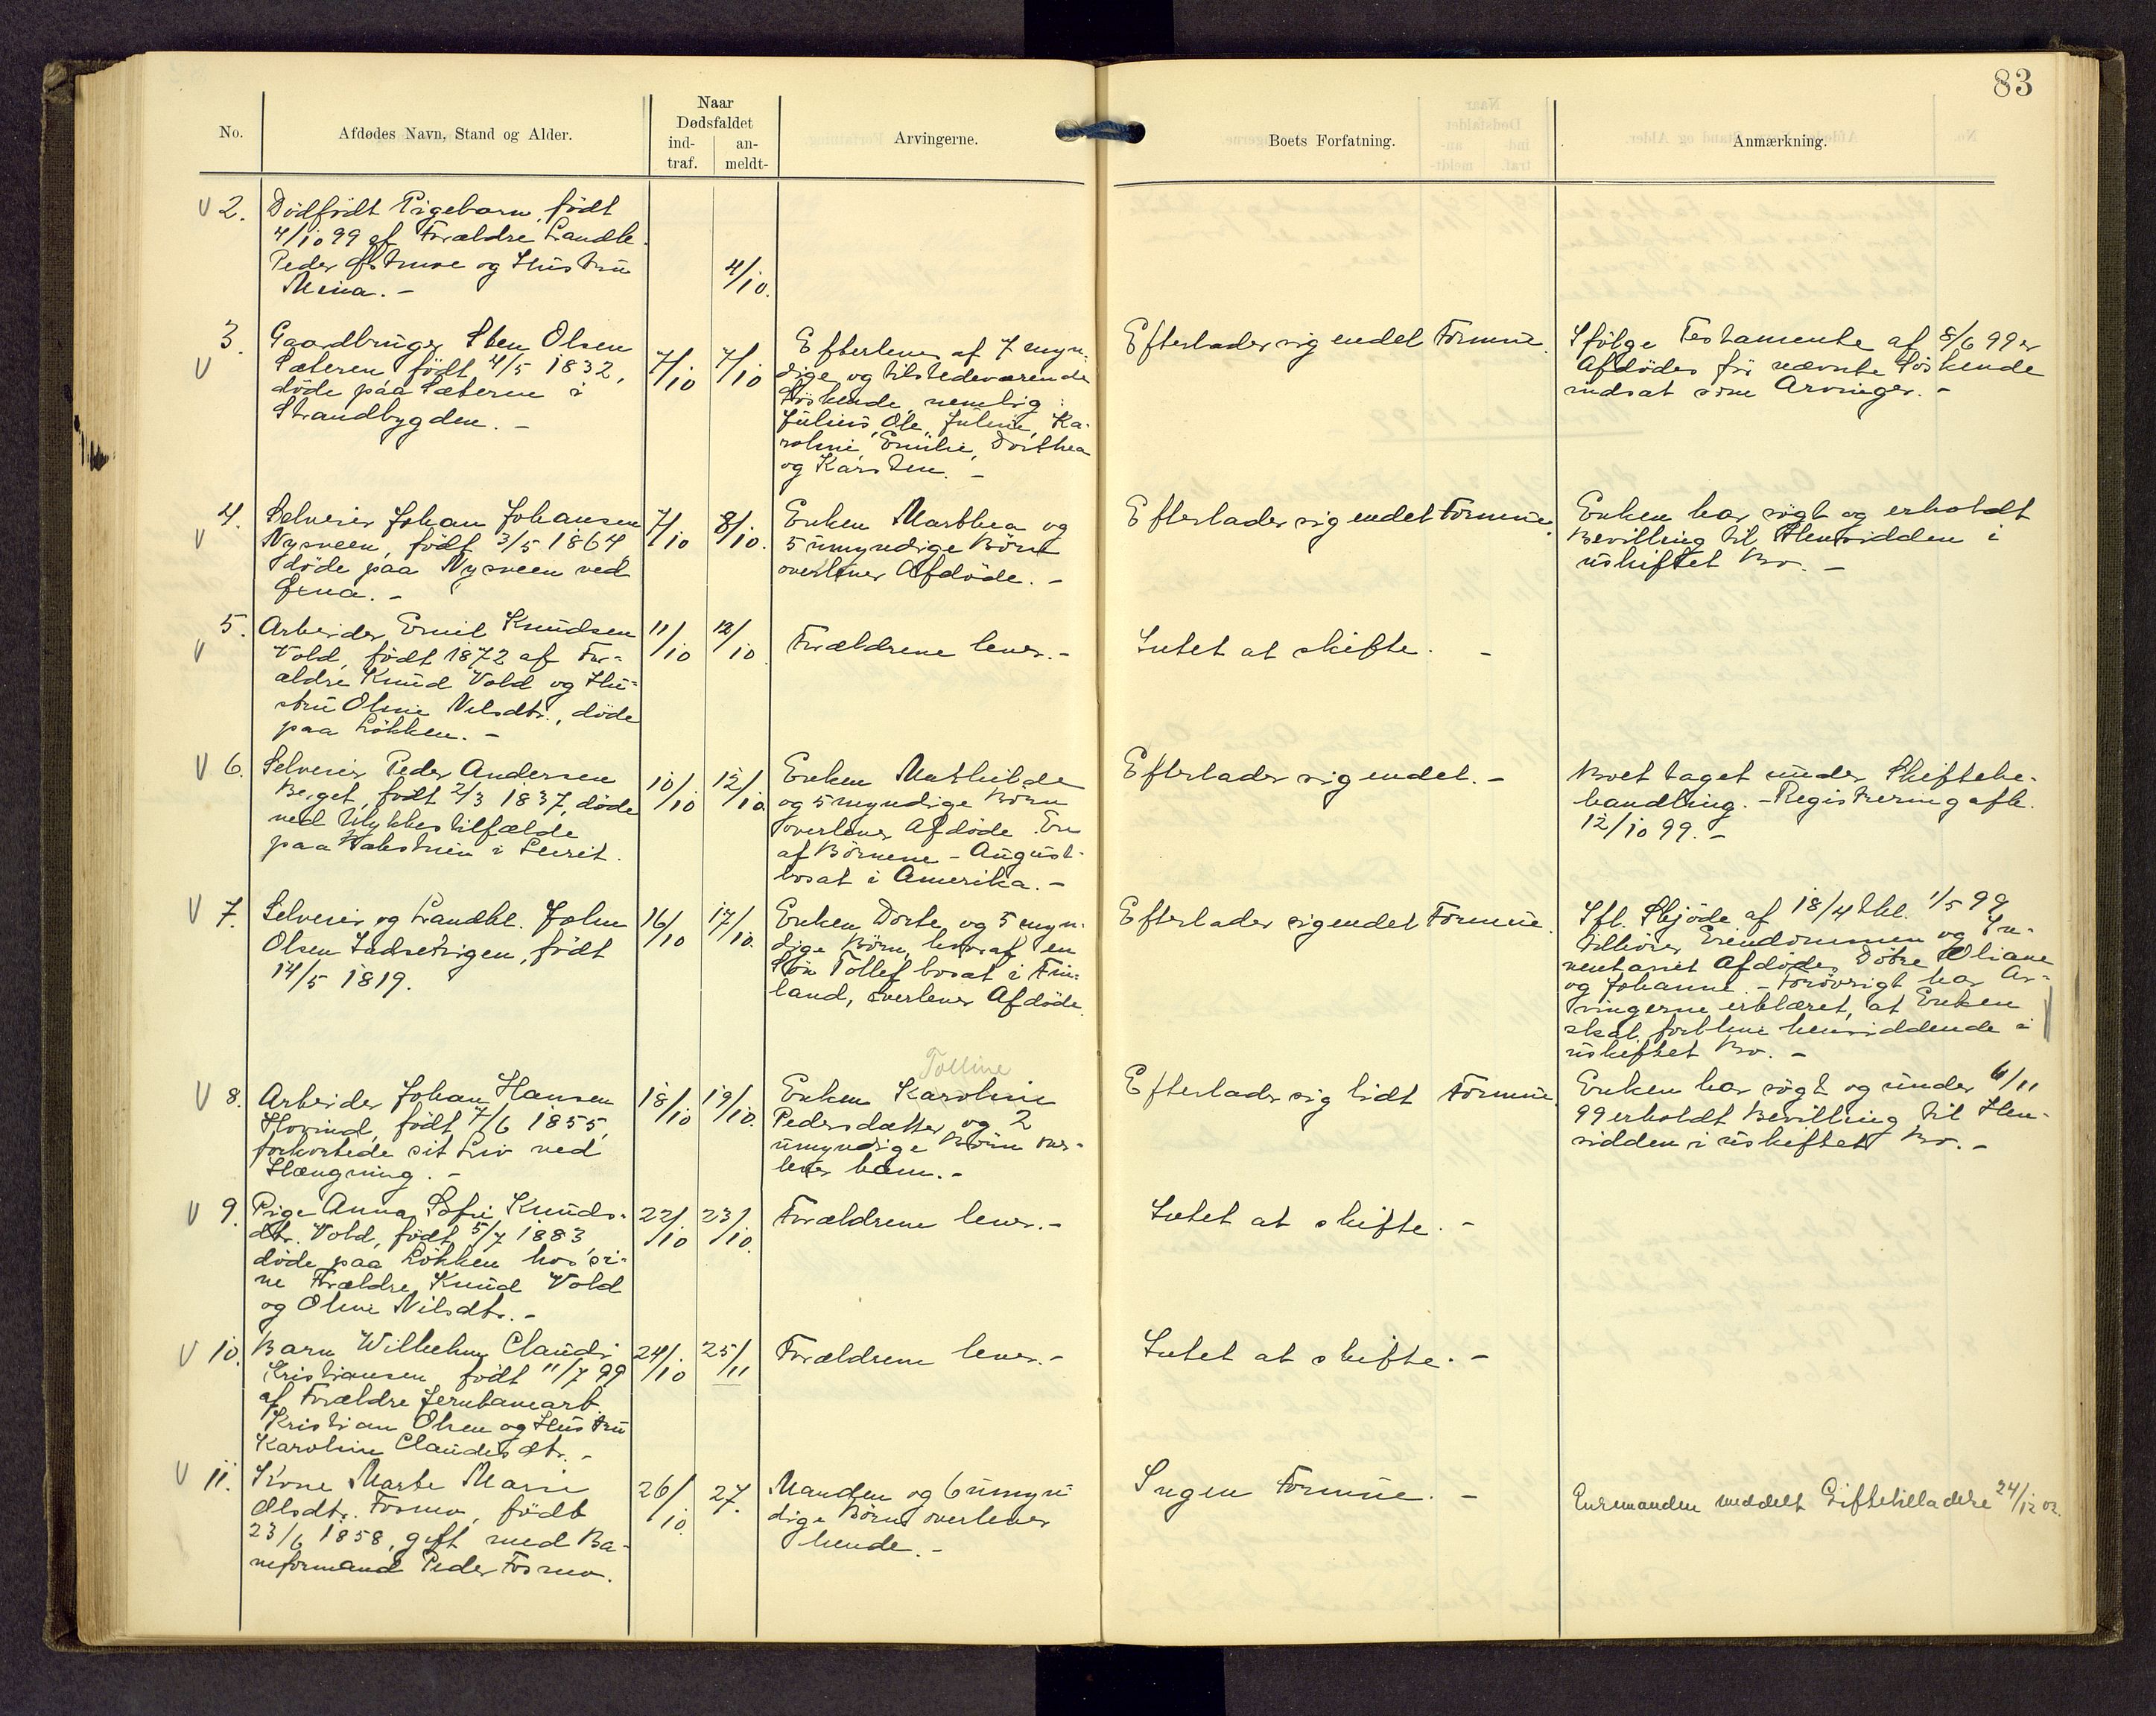 83
No.
Afdødes Navn, Stand og Alder.
Naar
Dødsfaldet
ind-
traf.
an-
meldt-
Arvingerne.
Boets Forfatning.
Anmærkning.
V 2.
Dödfödt Pigebarn, födt
4/10 99 af Forældre Landh.
Peder Østmoe og Hustru
Mina. -
4/10.
3.
V
Gaardbruger Sten Olsen
Sæteren födt 4/5 1832,
döde paa Sæteren i
Strandbygden. -
7/10
7/10
Efterleves af 7 myn-
dige og tilstedeværende
Söskende, nemlig:
Julius, Ole, Juline, Ka-
roline, Emilie, Dorthea
og Karsten. -
Efterlader sig endel Formue.
Ifölge Testamente af 8/6 99 er
Afdödes för nævnte Söskende
indsat som Arvinger. -
4.
V
Selveier Johan Johansen
Nysveen, födt 3/5 1864,
döde paa Nysveen ved
Øena. -
7/10
8/10.
Enken Marthea og
5 umyndige Börn
overlever Afdöde. -
Efterlader sig endel Formue.
Enken har sögt og erholdt
Bevilling til Hensidden i
uskiftet Bo. -
5.
V
Arbeider Emil Knudsen
Vold, födt 1872 af For-
ældre Knud Vold og Hu-
stru Oline Nilsdtr., döde
paa Lökken. -
11/10
12/10
Forældrene lever. -
Intet at skifte. -
V 6.
Selveier Peder Andersen
Berget, födt 2/3 1837, döde
ved Ulykkestilfælde
paa i Leiret.
10/10
12/10.
Enken Mathilde
og 5 myndige Börn
overlever Afdöde. En
af Börnene - August -
bosat i Amerika. -
Efterlader sig endel. -
Boet taget under Skiftebe-
handling. - Registrering afh.
12/10 99. -
V 7.
Selveier og Landhl. John
Olsen Indsetvigen, födt
14/5 1819.
16/10
17/10.
Enken Dorte og 5 myn-
dige Börn, hvoraf en
Sön Tollef bosat i Fin-
land, overlever Afdöde.
Efterlader sig endel Formue.
Ifl. Skjöde af 18/4 thl. 1/5 99
tilhörer Eiendommen og In-
ventariet Afdödes Dötre Oliane
og Johanne. - Forövrigt har Ar-
vingerne erklæret, at Enken
skal forblive hensiddende i
uskiftet Bo. -
V 8.
Arbeider Johan Hansen
Hovind, födt 7/6 1855,
forkortede sit Liv ved
Hængning. -
18/10
19/10.
Tolline
Enken Karoline
Pedersdatter og 2
umyndige Börn over-
lever ham. -
Efterlader sig lidt Formue.
Enken har sögt og under 6/11
99 erholdt Bevilling til Hen-
sidden i uskiftet Bo. -
V 9.
Pige Anna Sofie Knuds-
dtr. Vold, födt 5/7 1883,
döde paa Lökken hos si-
ne Forældre Knud Vold
og Oline Nilsdtr. -
22/10
23/10.
Forældrene lever. -
Intet at skifte. -
V 10.
Barn Wilhelm Claudi
Kristiansen födt 11/7 99
af Forældre Jernbanearb.
Kristian Olsen og Hustru
Karoline Claudisdtr. -
24/10
25/11
Forældrene lever. -
Intet at skifte. -
V 11.
Kone Marte Marie
Olsdtr. Formo, födt
23/6 1858, gift med Ba-
neformand Peder Formo.
26/10.
27.
Manden og 6 umyn-
dige Börn overlever
hende. -
Ingen Formue. -
Enkemanden meddelt Giftetilladelse 24/12 02.